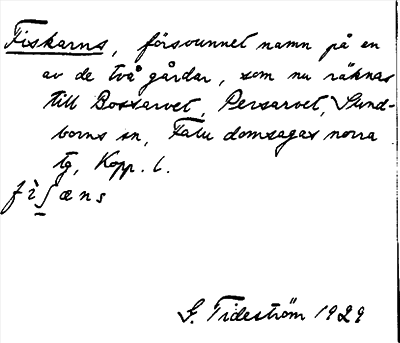 Fiskarns, försvunnet namn på en
av de två gårdar, som nu räknas
till Bossarvet, Persarvet, Sund-
borns sn, Falu domsagas norra
tg, Kopp. l.
fìʃæns
S. Tideström 1929